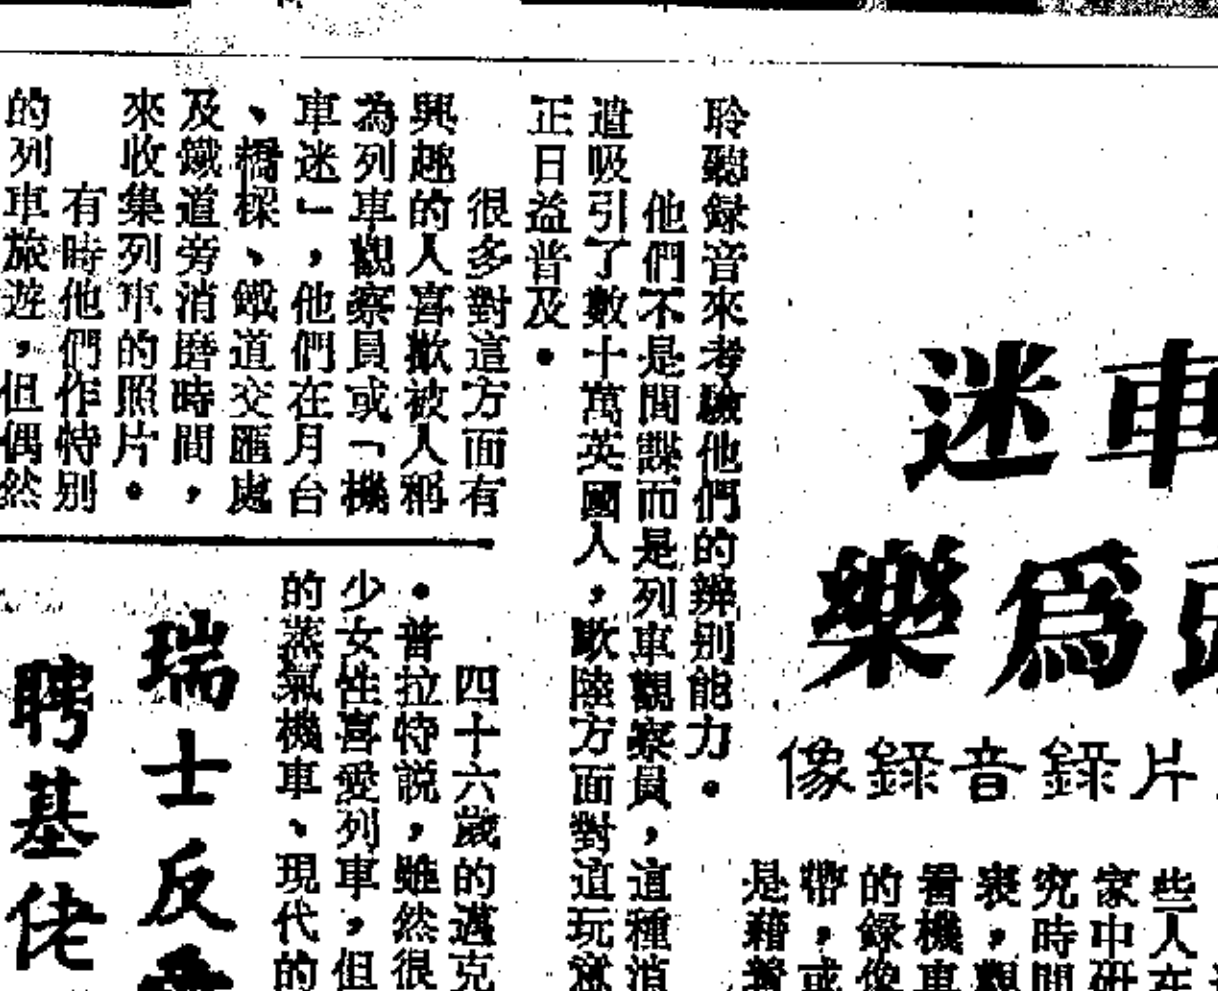 車迷
爲樂
片錄音錄像
些人在
家中研
究時間
表，觀
看機車
的錄像
帶，或
是藉着
聆聽録音來考驗他們的辨别能力。
他們不是間諜而是列車觀察員，這種消
遣吸引了數十萬英國人，歐陸方面對這玩
正日益普及。
很多對這方面有
興趣的人喜歡被人稱
為列車觀察員或「機
車迷」，他們在月台
、橋樑、鐵道交匯處
及鐵道旁消磨時間，
來收集列車的照片。
有時他們作特别
的列車旅遊，但偶然
四十六歲的邁克
。普拉特説，雖然很
少女性喜愛列車，但
的蒸氣機車、現代的
瑞士反
聘基佬